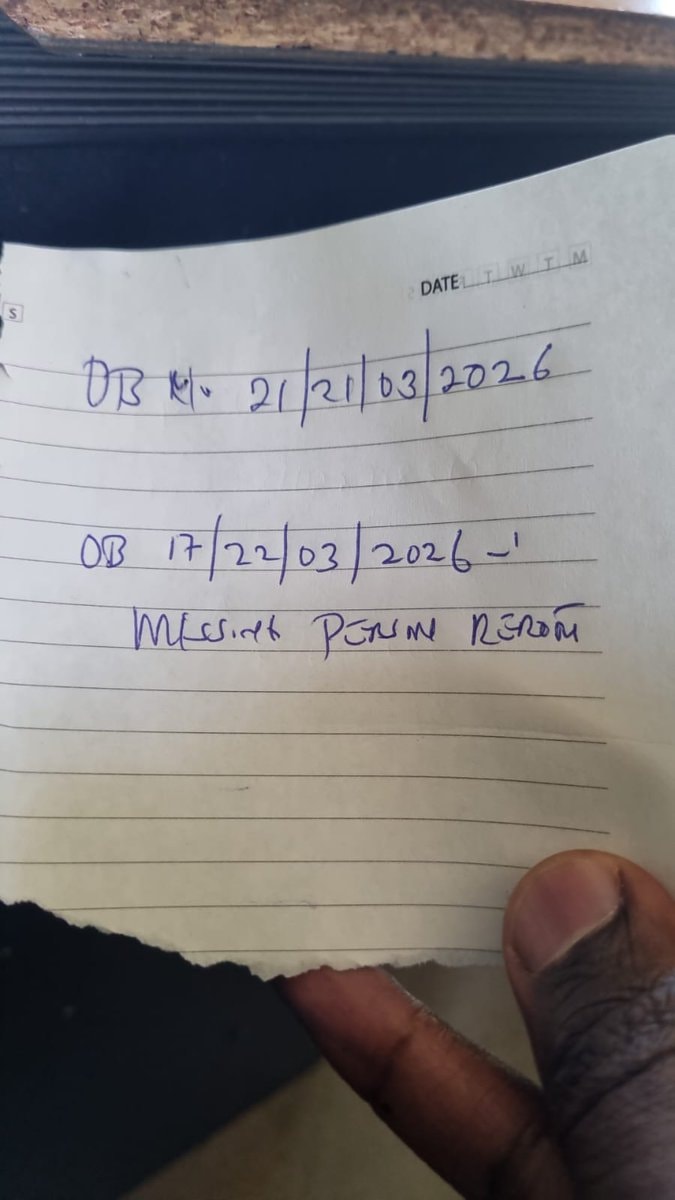 DATE T W T M
S
OB No. 21/21/03/2026
OB 17/22/03/2026 -'
MISSING PERSON REPORT